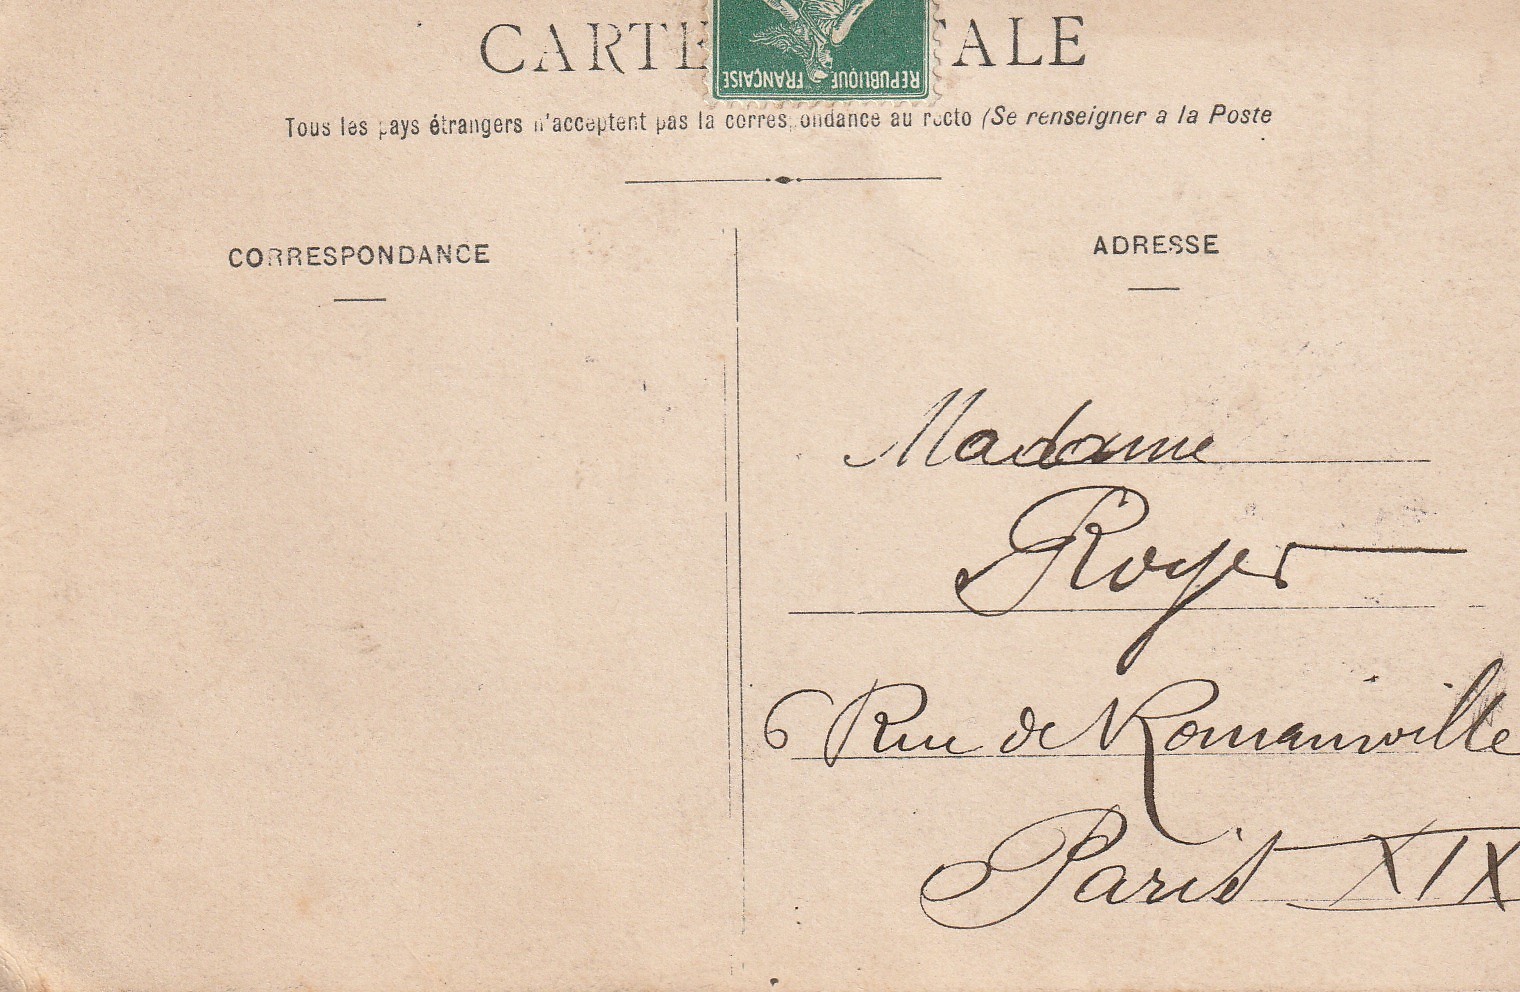 CARTE TALE
REPUBLIQUE FRANÇAISE
Tous les pays étrangers n'acceptent pas la correspondance au recto (Se renseigner a la Poste
CORRESPONDANCE
ADRESSE
Madame
Royer
6 Rue de Romainville
Paris XIX